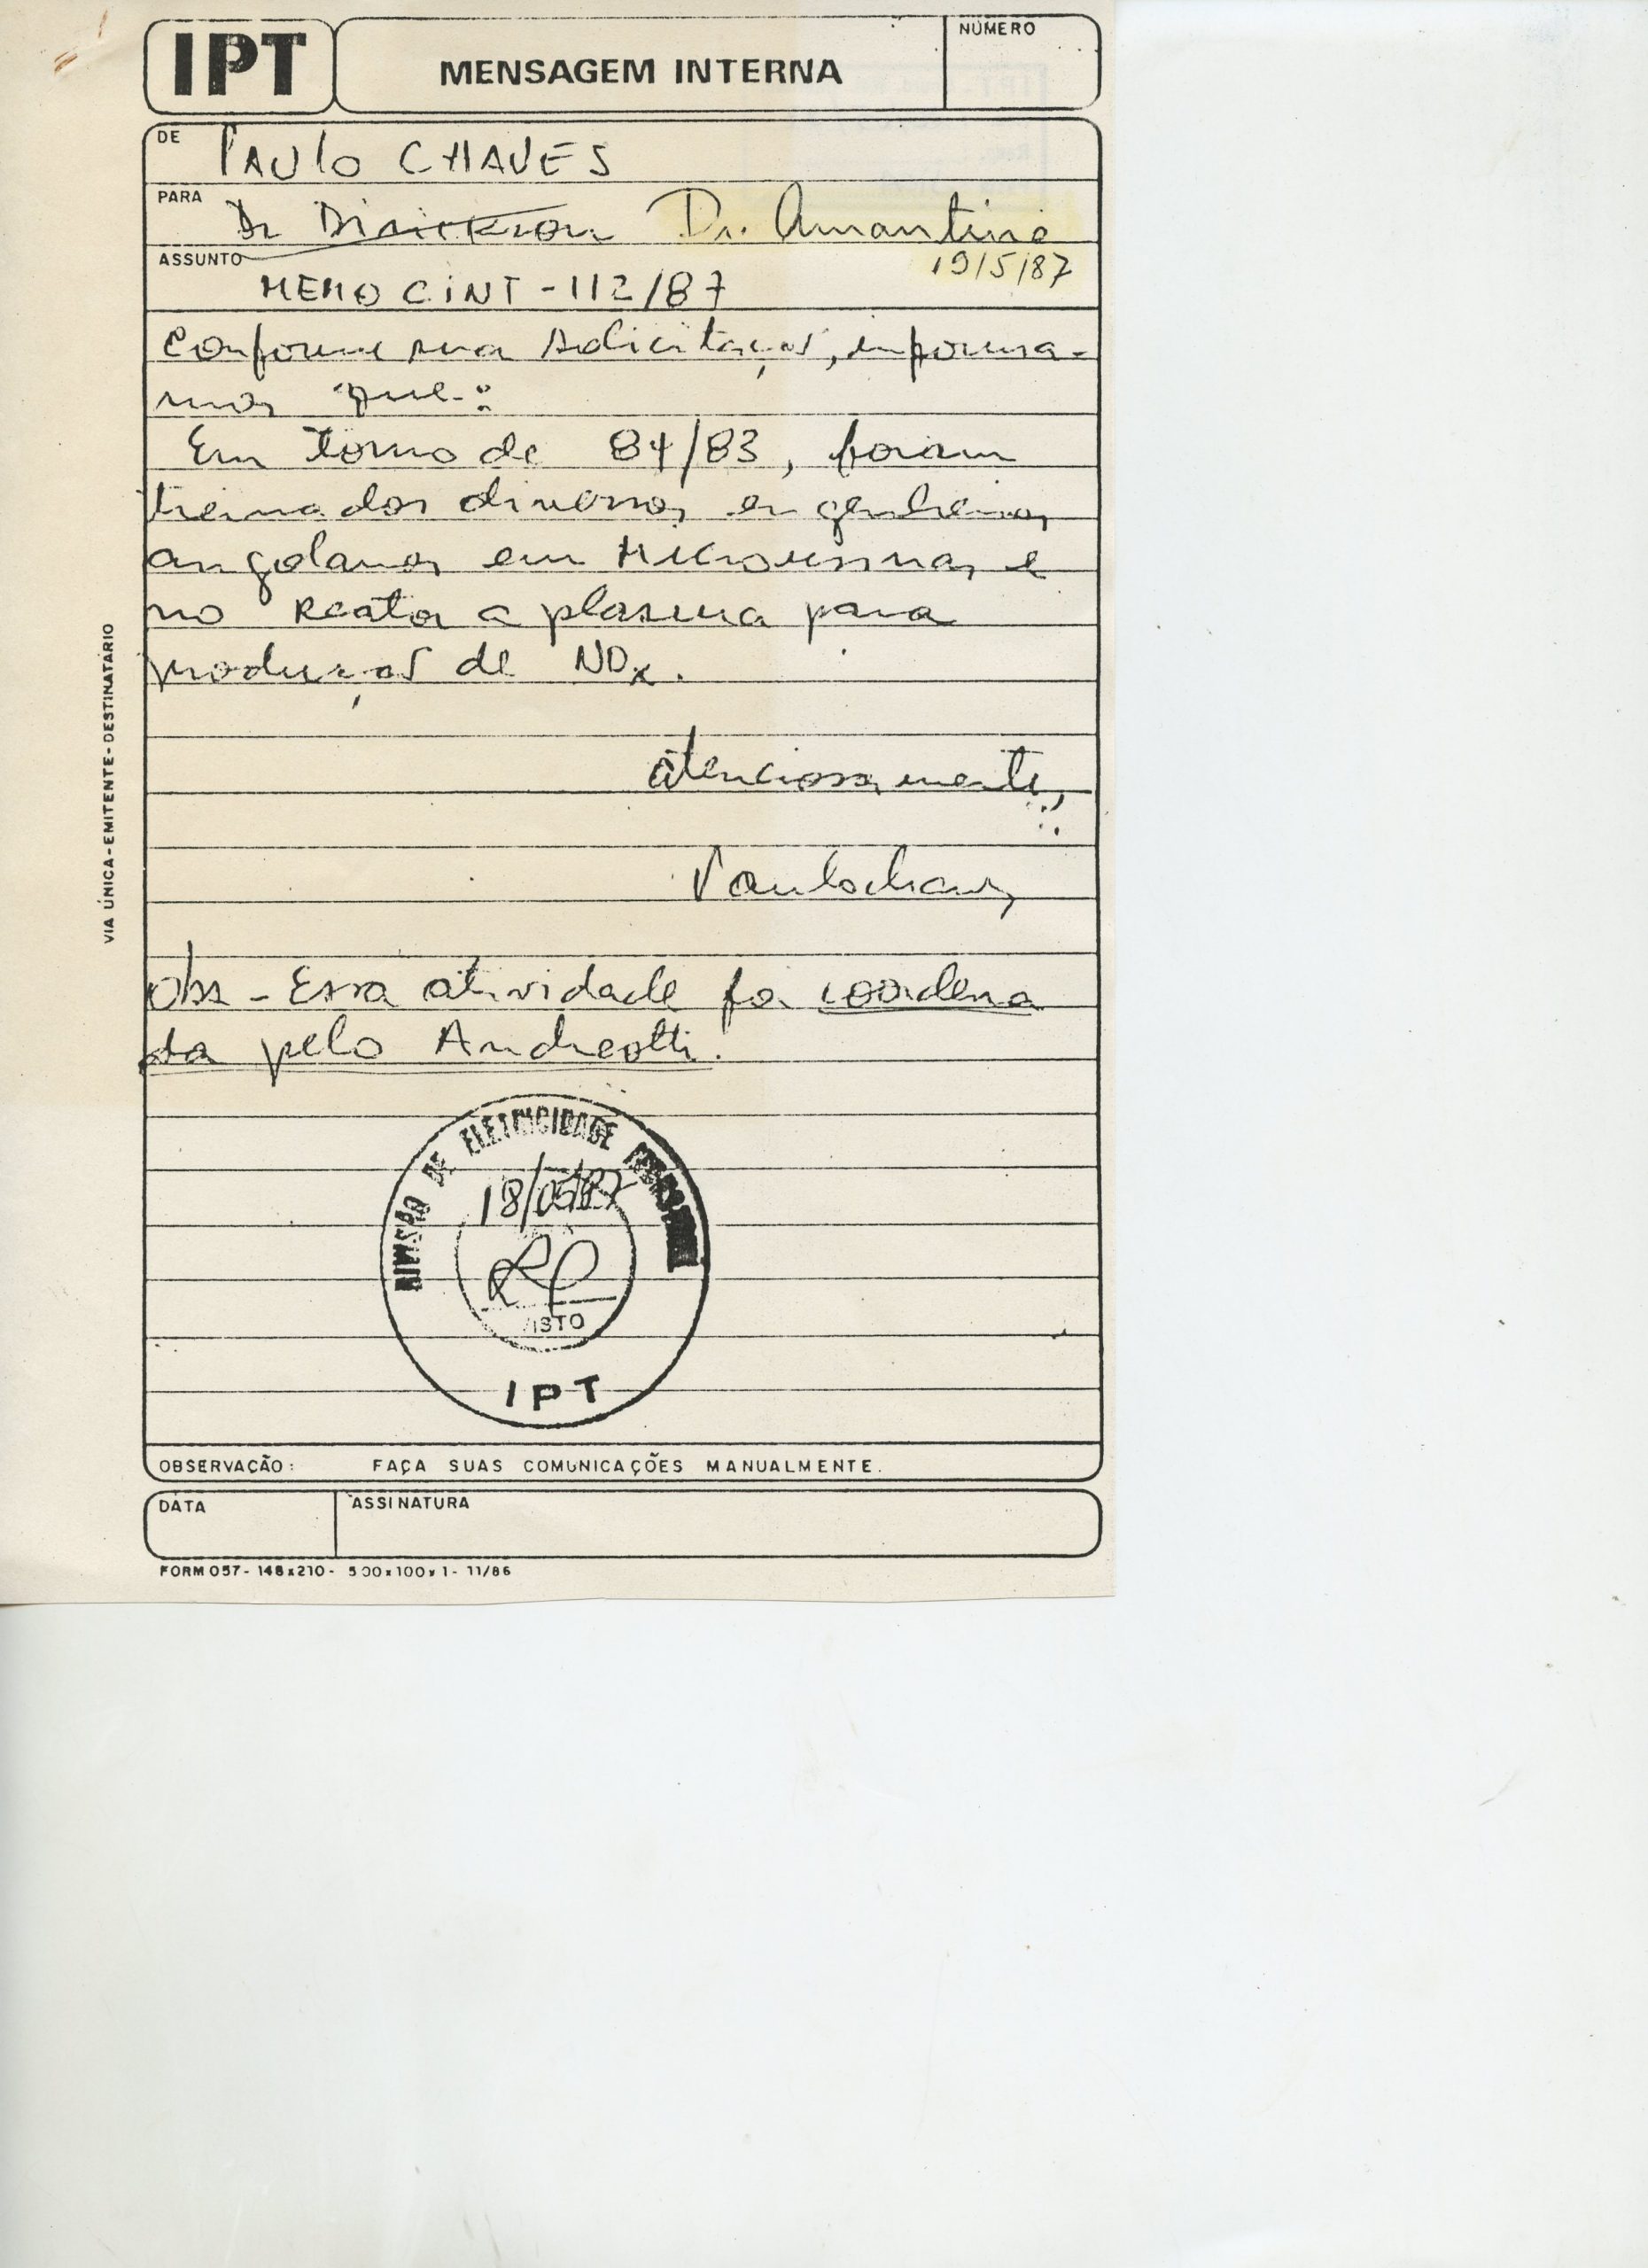 IPT
MENSAGEM INTERNA
NÚMERO
DE PAULO CHAVES
PARA Dr Dr. Amantino
19/5/87
ASSUNTO
MEMO CINT - 112/87
Conforme sua solicitação, informa-
mos que:
Em torno de 84/83, foram
treinados diversos engenheiros
angolanos em Microusinas e
no Reator a plasma para
produção de NOx.
atenciosamente,
Paulo Chaves
Obs - Essa atividade foi coordena
da pelo Andreotti.
DIVISÃO DE ELETRICIDADE
18/05/87
VISTO
IPT
OBSERVAÇÃO: FAÇA SUAS COMUNICAÇÕES MANUALMENTE.
DATA
ASSINATURA
FORM 057 - 148x210 - 500x100x1 - 11/86
VIA ÚNICA - EMITENTE - DESTINATÁRIO